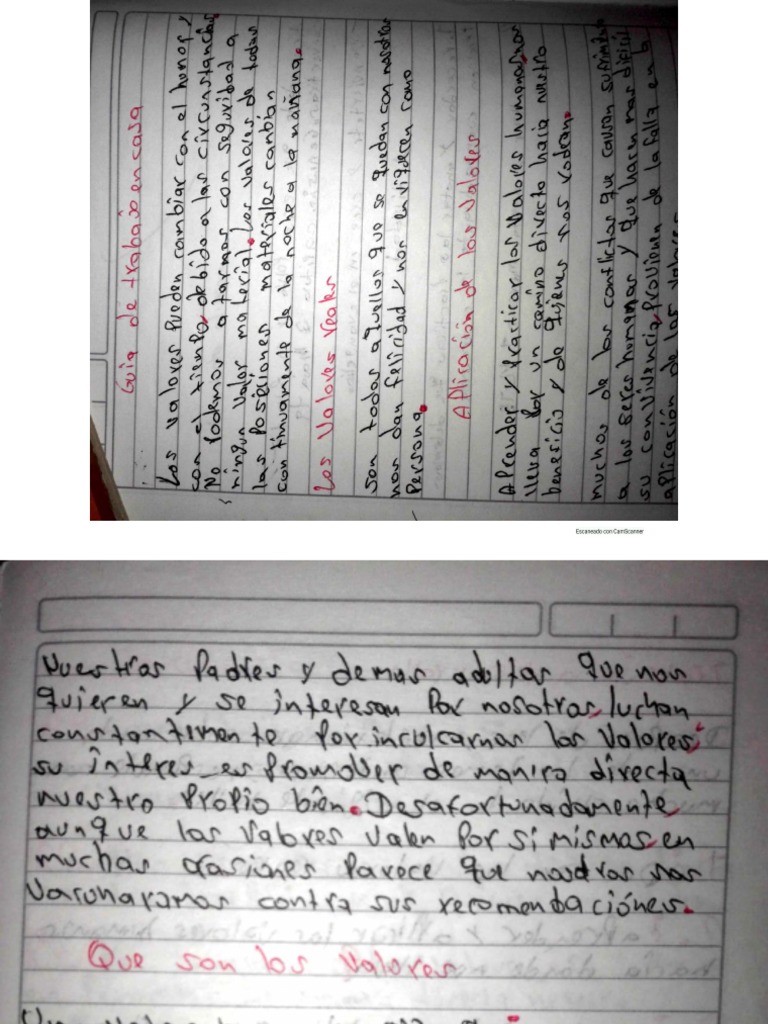 Guia de trabajo en casa
Los valores Pueden cambiar con el humor y
con el tiempo, debido a las circunstancias
No Podemos atarnos con seguridad a
ningun valor material. Los valores de todas
las Posesiones materiales cambian
continuamente de la noche a la mañana.
Los Valores reales
Son todos aquellos que se quedan con nosotros
nos dan felicidad y nos enriquecen como
Persona.
Aplicación de los valores
Aprender y Practicar los Valores humanos, nos
lleva Por un camino directo hacia nuestro
beneficio y de quienes nos rodean.
muchos de los conflictos que causan sufrimiento
a los seres humanos y que hacen mas dificil
su convivencia, Provienen de la falta en la
aplicación de los valores
Escaneado con CamScanner
Nuestros Padres y demas adultos que nos
quieren y se interesan Por nosotros, luchan
constantemente Por inculcarnos los Valores;
su interes es Promover de manera directa
nuestro Propio bien. Desafortunadamente,
aunque los valores valen Por si mismos, en
muchas ocasiones Parece que nosotros nos
vacunaramos contra sus recomendaciónes.
Que son los Valores